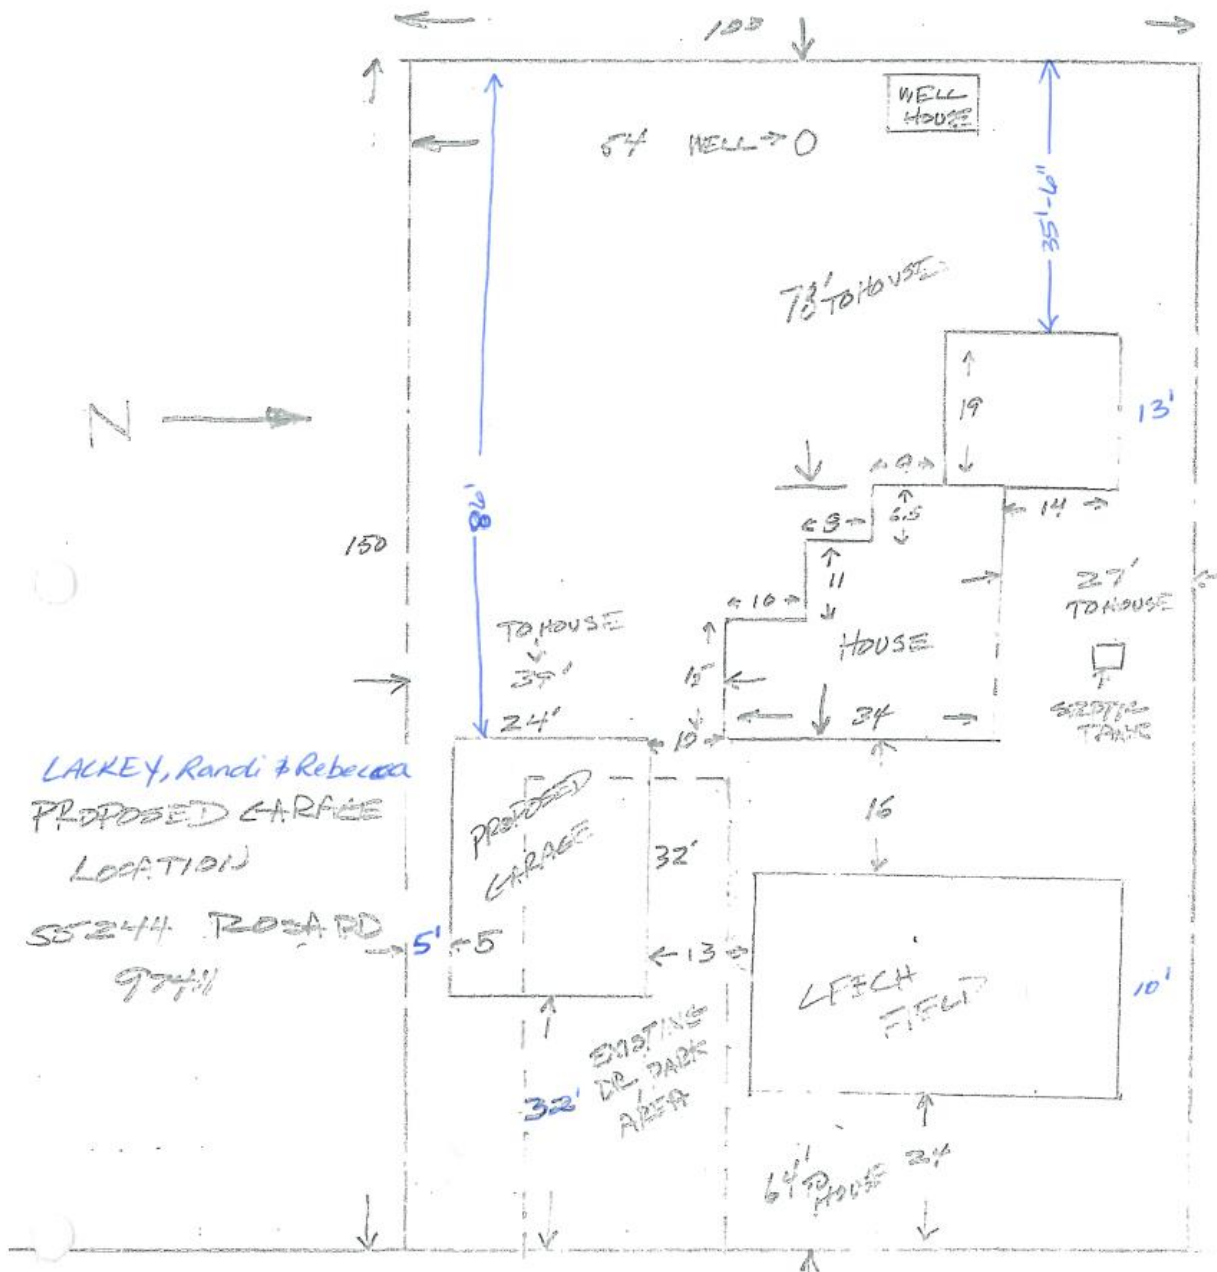 100
WELL
HOUSE
54 WELL → O
35'-6"
TO HOUSE
19
13'
N
9
86'
8
6.5
14
150
11
27'
TO HOUSE
10
TO HOUSE
HOUSE
39'
15
24'
34
SEPTIC
TANK
10
LACKEY, Randi & Rebecca
PROPOSED GARAGE
LOCATION
55244
97411
PROPOSED
GARAGE
32'
16
5'
5
13
LEECH
FIELD
10'
EXISTING
DR. PARK
AREA
32'
64' TO
HOUSE
24